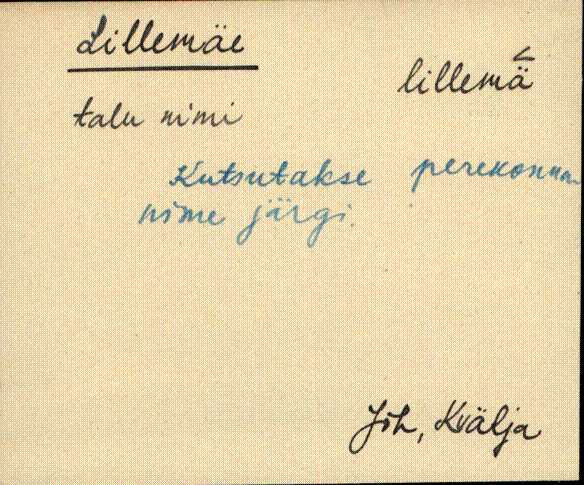 Lillemäe
lillemä
talu nimi
Kutsutakse perekonna
nime järgi.
Jõh, Kvälja